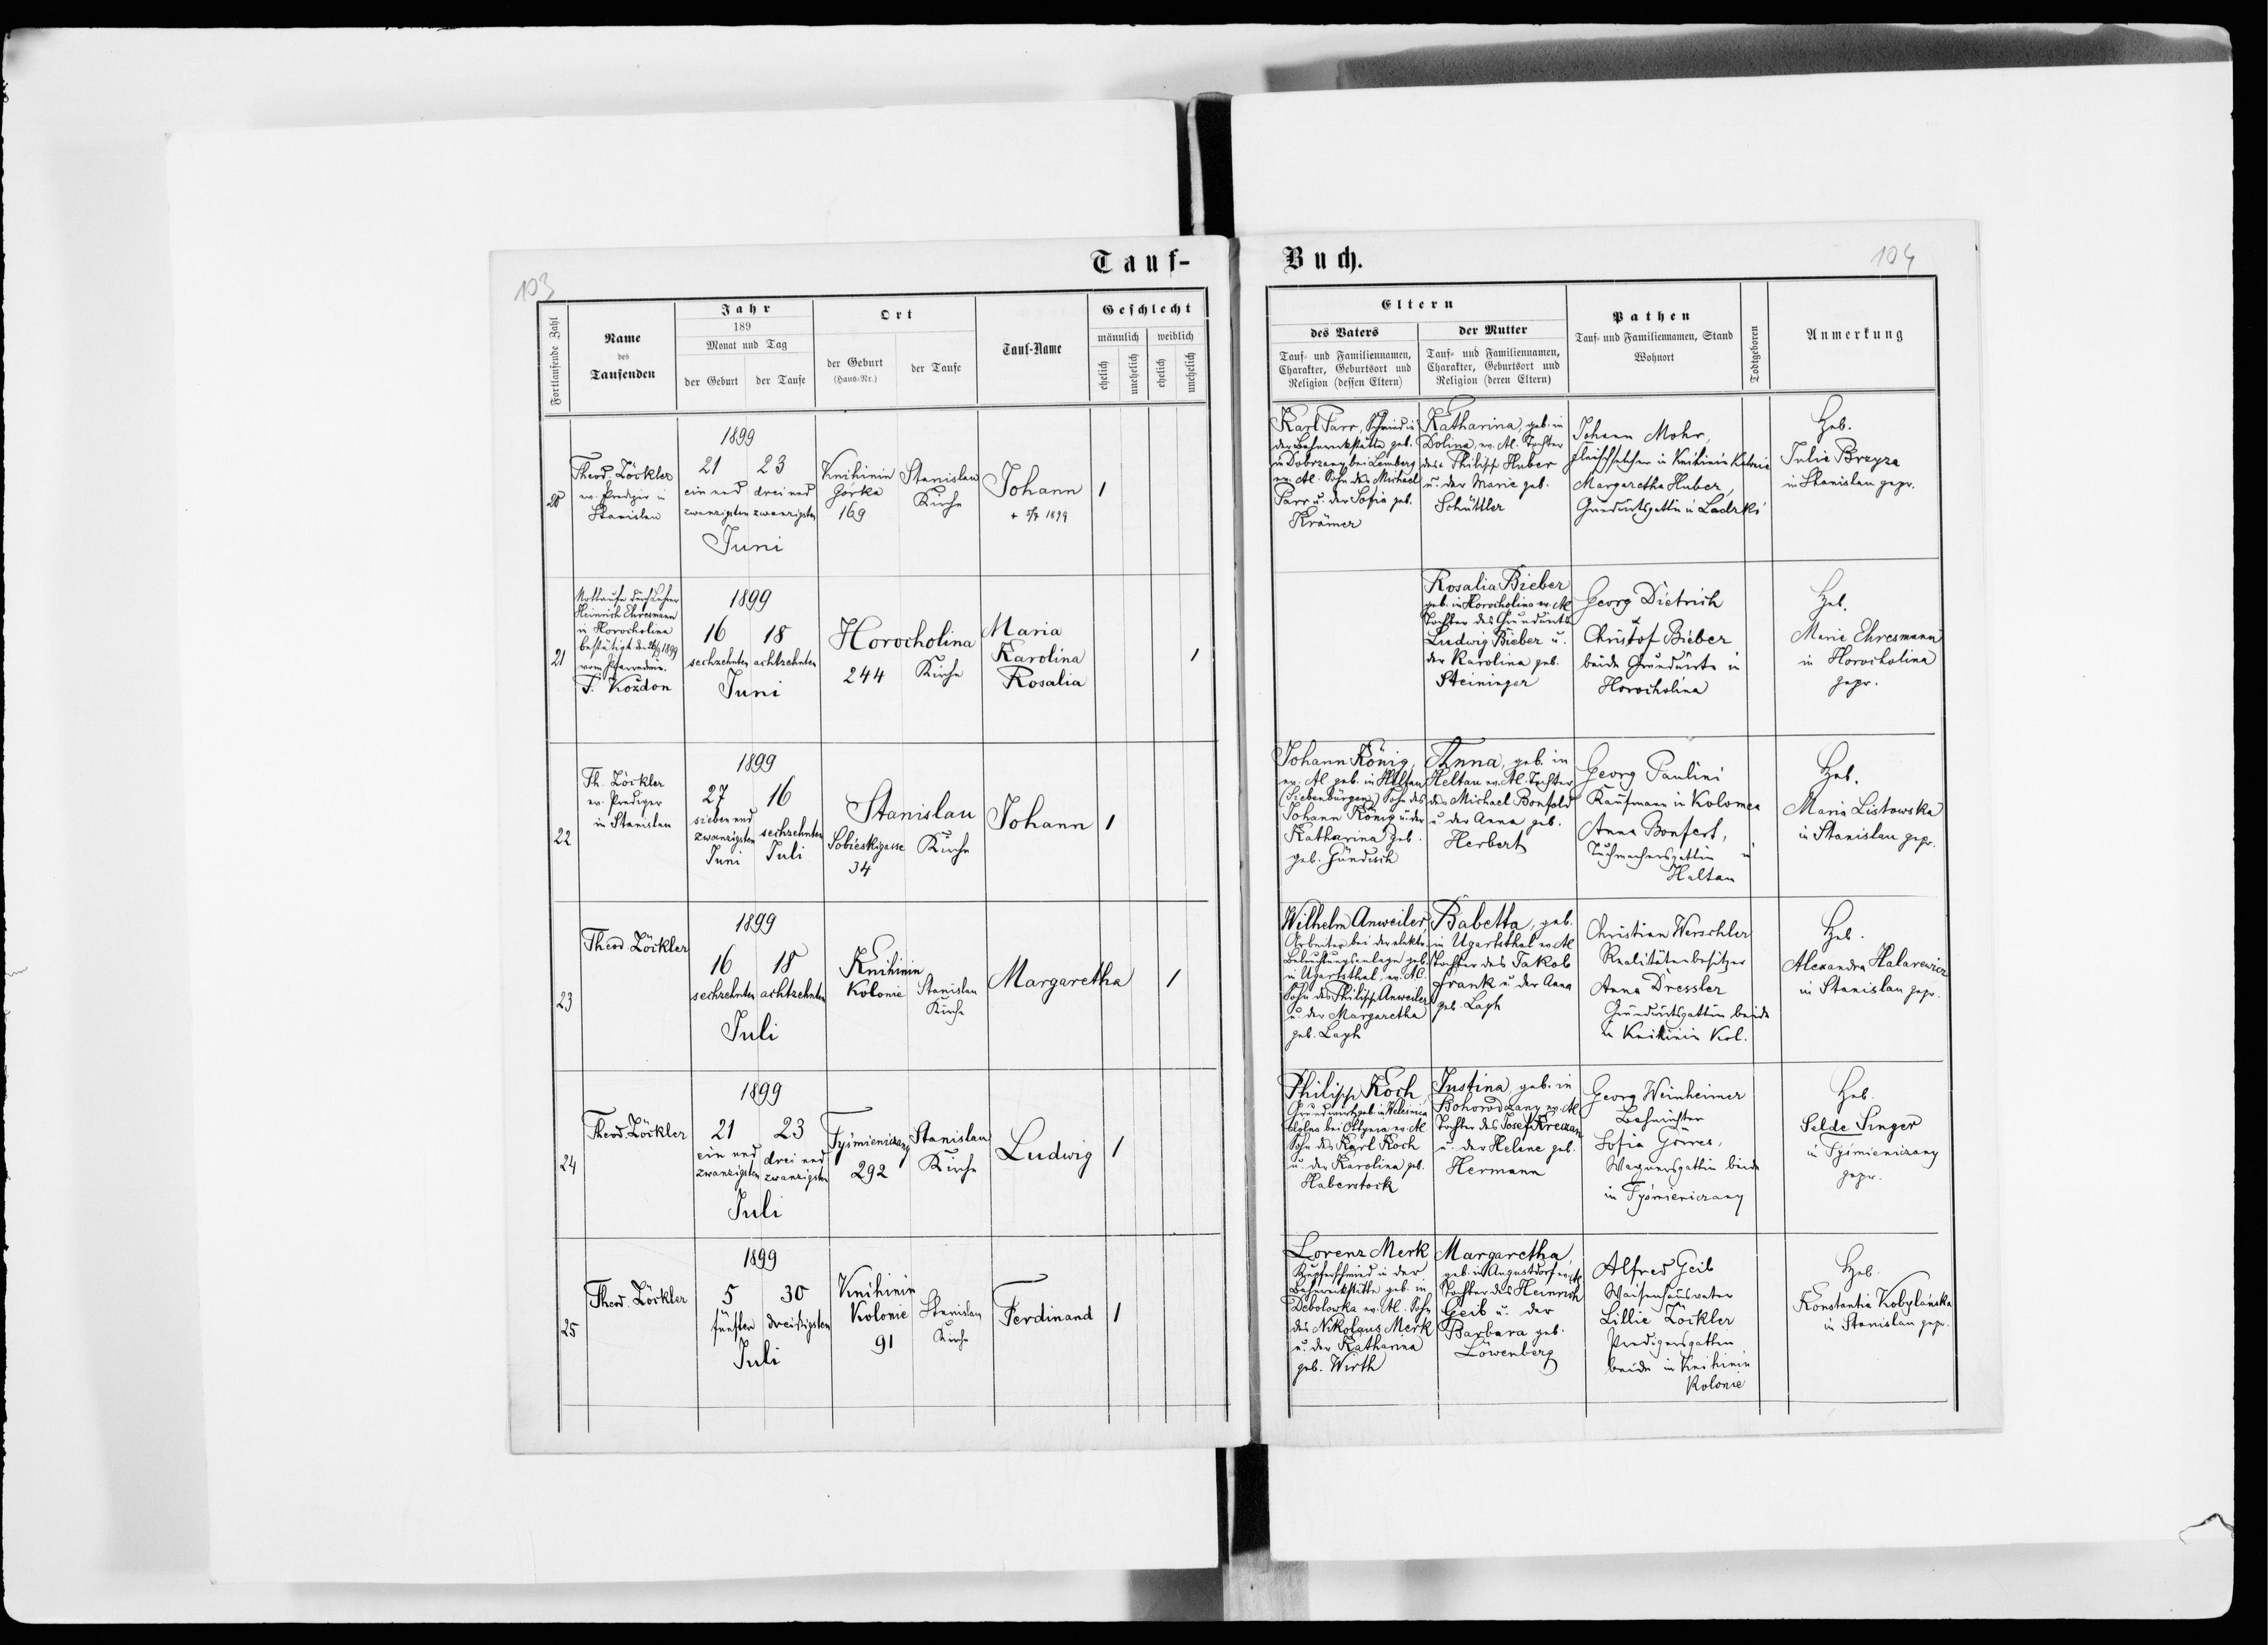 103
Tauf-
Fortlaufende Zahl
Name
des
Taufenden
Jahr
189
Monat und Tag
der Geburt
der Taufe
Ort
der Geburt
(Haus-Nr.)
der Taufe
Tauf-Name
Geschlecht
männlich
weiblich
ehelich
unehelich
ehelich
unehelich
20
Theod. Zöckler
ev. Prediger in
Stanislau
1899
21 23
ein und drei und
zwanzigsten zwanzigsten
Juni
Knihinin
Górka
169
Stanislau
Kirche
Johann
+ 5/7 1899
1
21
Nottaufe durch Lehrer
Heinrich Ehresmann
in Horocholina
bestätigt den 16/7 1899
vom Pfarradmin.
F. Kozdon
1899
16 18
sechzehnten achtzehnten
Juni
Horocholina
244 Kirche
Maria
Karolina
Rosalia
1
22
Th. Zöckler
ev. Prediger
in Stanislau
1899
27 16
sieben und
zwanzigsten sechzehnten
Juni Juli
Stanislau
Sobieskigasse Kirche
34
Johann
1
23
Theod. Zöckler
1899
16 18
sechzehnten achtzehnten
Juli
Knihinin
Kolonie
Stanislau
Kirche
Margaretha
1
24
Theod. Zöckler
1899
21 23
ein und drei und
zwanzigsten zwanzigsten
Juli
Tyśmieniczany
292
Stanislau
Kirche
Ludwig
1
25
Theod. Zöckler
1899
5 30
fünften dreißigsten
Juli
Knihinin
Kolonie
91
Stanislau
Kirche
Ferdinand
1
Buch.
104
Eltern
des Vaters
Tauf- und Familiennamen,
Charakter, Geburtsort und
Religion (dessen Eltern)
der Mutter
Tauf- und Familiennamen,
Charakter, Geburtsort und
Religion (deren Eltern)
Pathen
Tauf- und Familiennamen, Stand
Wohnort
Todtgeboren
Anmerkung
Karl Parr, Schmied in
der Bahnwerkstätte geb.
in Dobrzany bei Lemberg
ev. AC. Sohn des Michael
Parr u. der Sofia geb.
Krämer
Katharina, geb. in
Dolina, ev. AC. Tochter
des Philipp Huber
u. der Marie geb.
Schüttler
Johann Mohr,
Fleischselcher in Knihinin Kolonie
Margaretha Huber,
Grundwirtsgattin in Ladzki
Heb.
Julie Brzyza
in Stanislau gepr.
Rosalia Bieber
geb. in Horocholina ev. AC
Tochter des Grundwirts
Ludwig Bieber u.
der Karolina geb.
Steininger
Georg Dietrich
Christof Bieber
beide Grundwirte in
Horocholina
Heb.
Marie Ehresmann
in Horocholina
gepr.
Johann König,
ev. AC. geb. in Heltau
(Siebenbürgen) Sohn des
Johann König u. der
Katharina geb.
geb. Gündisch
Anna, geb. in
Heltau ev. AC. Tochter
des Michael Bonfold
u. der Anna geb.
Herbert
Georg Paulini
Kaufmann in Kolomea
Anna Bonfert,
Tuchmachersgattin in
Heltau
Heb.
Maria Listowska
in Stanislau gepr.
Wilhelm Anweiler,
Arbeiter bei der elektr.
Beleuchtungsanlage geb.
in Ugartsthal, ev. AC.
Sohn des Philipp Anweiler
u. der Margaretha
geb. Laph
Babetta, geb.
in Ugartsthal ev. AC
Tochter des Jakob
Frank u. der Anna
geb. Laph
Christian Werschler
Realitätenbesitzer
Anna Dressler
Grundwirtsgattin beide
in Knihinin Kol.
Heb.
Alexandra Halarewicz
in Stanislau gepr.
Philipp Koch,
Grundwirt geb. in
bei Ottynia ev. AC
Sohn des Karl Koch
u. der Karolina geb.
Haberstock
Justina, geb. in
Bohorodczany ev. AC
Tochter des Josef Kreczan
u. der Helene geb.
Hermann
Georg Weinheimer
Sofia Görres,
Wagnersgattin beide
in Tyśmieniczany
Heb.
Selde Singer
in Tyśmieniczany
gepr.
Lorenz Merk
Kupferschmied in der
Bahnwerkstätte geb. in
Debolowka ev. AC. Sohn
des Nikolaus Merk
u. der Katharina
geb. Wirth
Margaretha,
geb. in Augustdorf ev. AC
Tochter des Heinrich
Geib u. der
Barbara geb.
Löwenberg
Alfred Geib
Waisenhausvater
Lillie Zöckler
Predigersgattin
beide in Knihinin
Kolonie
Heb.
Konstantia Kobylańska
in Stanislau gepr.